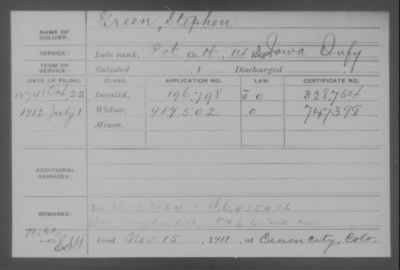 NAME OF SOLDIER: Green, Stephen
SERVICE: Late rank, Pvt Co. H, 14 Iowa Infy
TERM OF SERVICE: Enlisted , 1 Discharged , 1
DATE OF FILING. CLASS. APPLICATION NO. LAW. CERTIFICATE NO.
Oct. 22 Invalid, 196,798 0 328,754
1912 July 1 Widow, 989502 0 747398
Minor,
ADDITIONAL SERVICES:
REMARKS:
Died Nov 15, 1911, at Canon city, Colo.